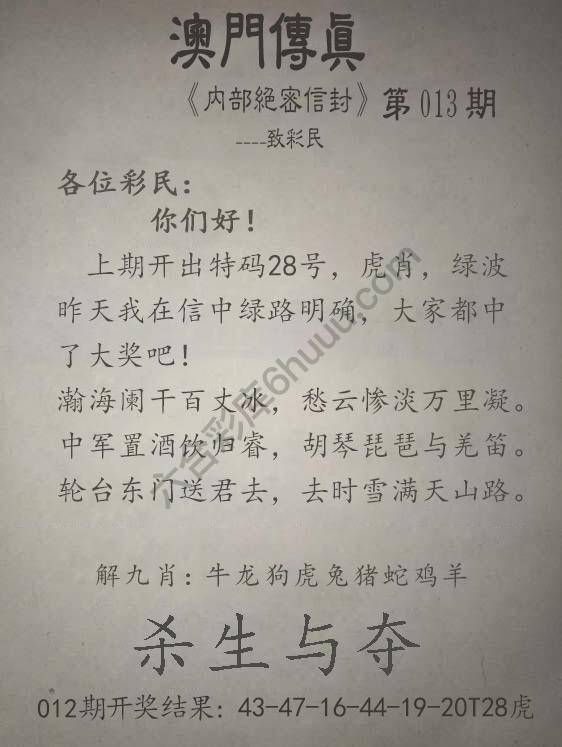 澳門傳眞
《内部絕密信封》第013期
----致彩民
各位彩民：
你们好！
上期开出特码28号，虎肖，绿波
昨天我在信中绿路明确，大家都中
了大奖吧！
瀚海阑干百丈冰，愁云惨淡万里凝。
中军置酒饮归睿，胡琴琵琶与羌笛。
轮台东门送君去，去时雪满天山路。
六合彩库6huuu.com
解九肖：牛龙狗虎兔猪蛇鸡羊
杀生与夺
012期开奖结果：43-47-16-44-19-20T28虎